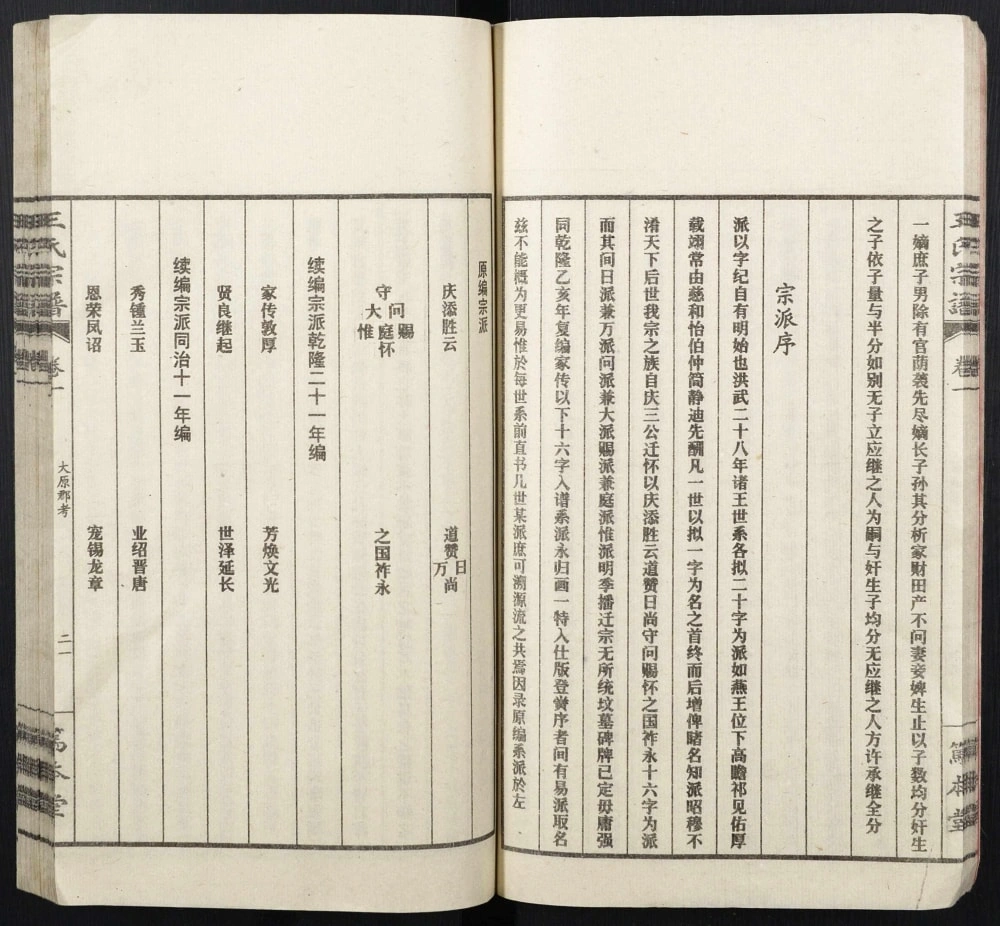 王氏宗譜
卷一
篤本堂
一嫡庶子男除有官荫袭先尽嫡长子孙其分析家财田产不问妻妾婢生止以子数均分奸生
之子依子量与半分如别无子立应继之人为嗣与奸生子均分无应继之人方许承继全分
宗派序
派以字纪自有明始也洪武二十八年诸王世系各拟二十字为派如燕王位下高瞻祁见佑厚
载翊常由慈和怡伯仲简静迪先酬凡一世以拟一字为名之首终而后增俾睹名知派昭穆不
淆天下后世我宗之族自庆三公迁怀以庆添胜云道赞日尚守问赐怀之国祚永十六字为派
而其间日派兼万派问派兼大派赐派兼庭派惟派明季播迁宗无所统坟墓碑牌已定毋庸强
同乾隆乙亥年复编家传以下十六字入谱系派永归画一特入仕版登黉序者间有易派取名
兹不能概为更易惟於每世系前直书几世某派庶可溯源流之共焉因录原编系派於左
原编宗派
庆添胜云
道赞日万尚
守问大赐庭惟怀
之国祚永
续编宗派乾隆二十一年编
家传敦厚
芳焕文光
贤良继起
世泽延长
续编宗派同治十一年编
秀锺兰玉
业绍晋唐
恩荣凤诏
宠锡龙章
王氏宗譜
卷一
大原郡考
二一
篤本堂